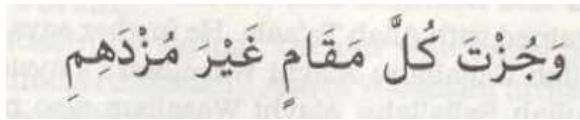 وَجُزْتَ كُلَّ مَقَامٍ غَيْرَ مُزْدَهِمِ